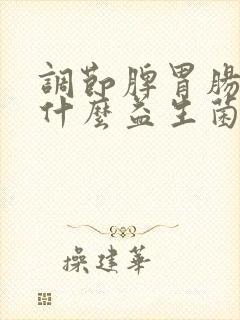 調節脾胃腸
什麼益生菌
操建華